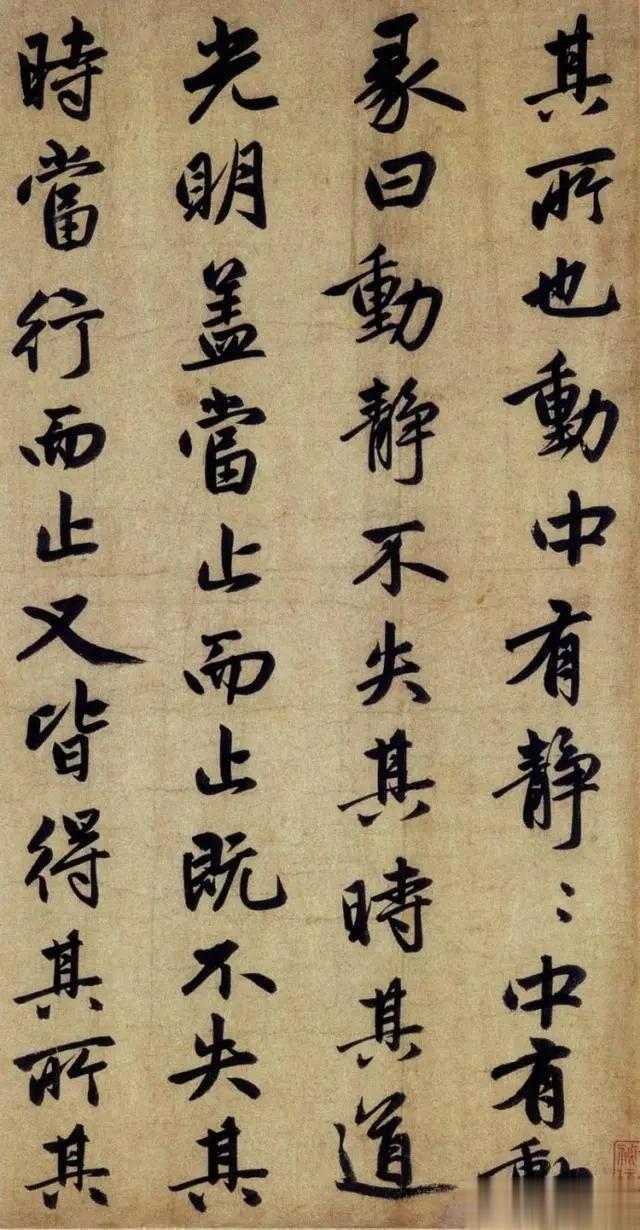 其所也動中有靜〻中有動
彖曰動靜不失其時其道
光明盖當止而止既不失其
時當行而止又皆得其所其